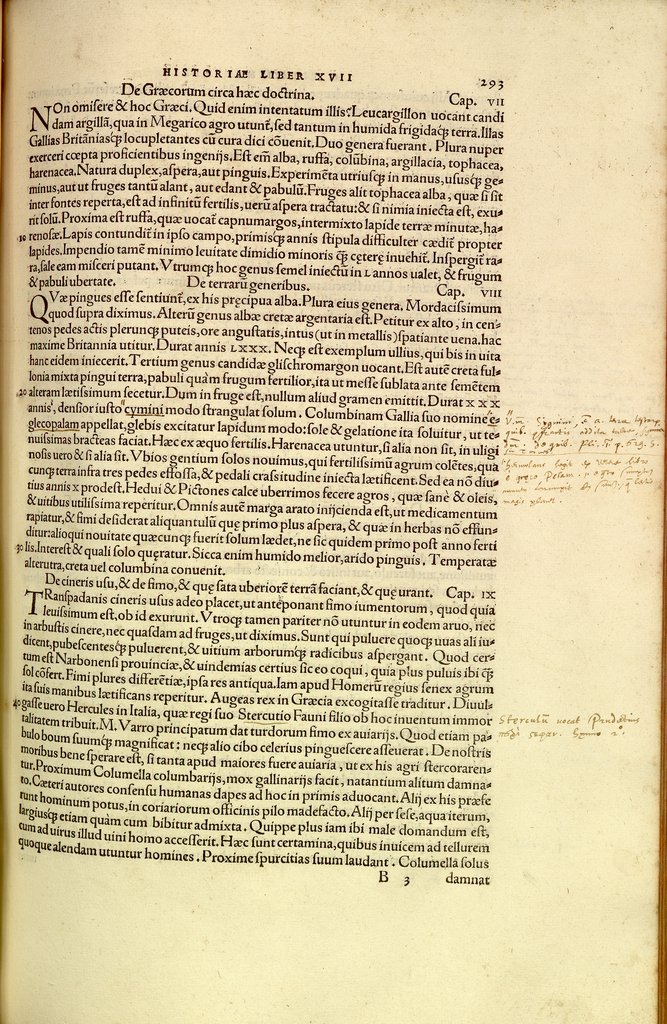 HISTORIAE LIBER XVII
293
De Græcorum circa hæc doctrina.
Cap. VII
NOn omisere & hoc Græci. Quid enim intentatum illis? Leucargillon uocant candi
dam argillā, qua in Megarico agro utunt̄, sed tantum in humida frigidaq̃ terra. Illas
Gallias Britāniasq̃ locupletantes cū cura dici cōuenit. Duo genera fuerant. Plura nuper
exerceri cœpta proficientibus ingenijs. Est em̄ alba, ruffa, colūbina, argillacia, tophacea,
harenacea. Natura duplex, aspera, aut pinguis. Experimēta utriusq̃ in manus, ususq̃ ge-
minus, aut ut fruges tantū alant, aut edant & pabulū. Fruges alit tophacea alba, quæ si sit
inter fontes reperta, est ad infinitū fertilis, uerū aspera tractatu: & si nimia iniecta est, exu-
rit solū. Proxima est ruffa, quæ uocat̄ capnumargos, intermixto lapide terræ minutæ, ha-
10 renosæ. Lapis contundit̄ in ipso campo, primisq̃ annis stipula difficulter cædit̄ propter
lapides. Impendio tamē minimo leuitate dimidio minoris q̃ ceteræ inuehit̄. Inspergit̄ ra-
ra, sale eam misceri putant. Vtrumq̃ hoc genus semel iniectū in L annos ualet, & frugum
& pabuli ubertate.
De terrarū generibus.
Cap. VIII
QVæ pingues esse sentiunt̄, ex his præcipua alba. Plura eius genera. Mordacissimum
quod supra diximus. Alterū genus albæ cretæ argentaria est. Petitur ex alto, in cen-
tenos pedes actis plerunq̃ puteis, ore angustatis, intus (ut in metallis) spatiante uena. hac
maxime Britannia utitur. Durat annis LXXX. Neq̃ est exemplum ullius, qui bis in uita
hanc eidem iniecerit. Tertium genus candidæ glischromargon uocant. Est autē creta ful-
lonia mixta pingui terra, pabuli quàm frugum fertilior, ita ut messe sublata ante sementem
20 alteram lætissimum secetur. Dum in fruge est, nullum aliud gramen emittit. Durat XXX
annis, densior iusto cymini modo strangulat solum. Columbinam Gallia suo nomine e-
glecopalam appellat, glebis excitatur lapidum modo: sole & gelatione ita soluitur, ut te-
nuissimas bracteas faciat. Hæc ex æquo fertilis. Harenacea utuntur, si alia non sit, in uligi
nosis uero & si alia sit. Vbios gentium solos nouimus, qui fertilissimū agrum colētes, qua
cunq̃ terra infra tres pedes effossa, & pedali crassitudine iniecta lætificent. Sed ea nō diu-
tius annis X prodest. Hedui & Pictones calce uberrimos fecere agros, quæ sanè & oleis,
& uitibus utilissima reperitur. Omnis autē marga arato inijcienda est, ut medicamentum
rapiatur, & fimi desiderat aliquantulū quæ primo plus aspera, & quæ in herbas nō effun-
ditur: alioqui nouitate quæcunq̃ fuerit solum lædet, ne sic quidem primo post anno ferti
30 lis. Interest & quali solo quæratur. Sicca enim humido melior, arido pinguis. Temperatæ
alterutra, creta uel columbina conuenit.
De cineris usu, & de fimo, & quę sata uberiorē terrā faciant, & quę urant. Cap. IX
TRanspadanis cineris usus adeo placet, ut antēponant fimo iumentorum, quod quia
leuissimum est, ob id exurunt. Vtroq̃ tamen pariter nō utuntur in eodem aruo, nec
in arbustis cinere, nec quasdam ad fruges, ut diximus. Sunt qui puluere quoq̃ uuas ali iu-
dicent, pubescentesq̃ puluerent, & uitium arborumq̃ radicibus aspergant. Quod cer-
tum est Narbonensi prouinciæ, & uindemias certius sic eo coqui, quia plus puluis ibi q̃
sol cōfert. Fimi plures differētiæ, ipsa res antiqua. Iam apud Homerū regius senex agrum
ita suis manibus lætificans reperitur. Augeas rex in Græcia excogitasse traditur. Diuul-
40 gasse uero Hercules in Italia, quæ regi suo Stercutio Fauni filio ob hoc inuentum immor
talitatem tribuit. M. Varro principatum dat turdorum fimo ex auiarijs. Quod etiam pa-
bulo boum suumq̃ magnificat: neq̃ alio cibo celerius pinguescere asseuerat. De nostris
moribus bene sperare est, si tanta apud maiores fuere auiaria, ut ex his agri stercoraren-
tur. Proximum Columella columbarijs, mox gallinarijs facit, natantium alitum damna-
to. Cæteri autores consensu humanas dapes ad hoc in primis aduocant. Alij ex his præfe
runt hominum potus, in coriariorum officinis pilo madefacto. Alij per sese, aqua iterum,
largiusq̃ etiam quàm cum bibitur admixta. Quippe plus iam ibi male domandum est,
cum ad uirus illud uini homo accesserit. Hæc sunt certamina, quibus inuicem ad tellurem
quoque alendam utuntur homines. Proxime spurcitias suum laudant. Columella solus
B 3
damnat
Sterculū uocat Prudētius